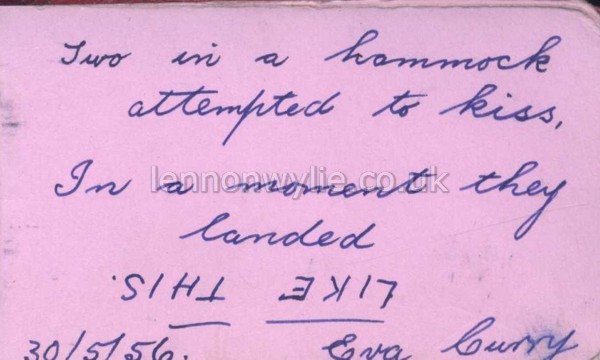 Two in a hammock
attempted to kiss,
In a moment they
lennonwylie.co.uk
landed
LIKE THIS.
30/5/56. Eva Curry